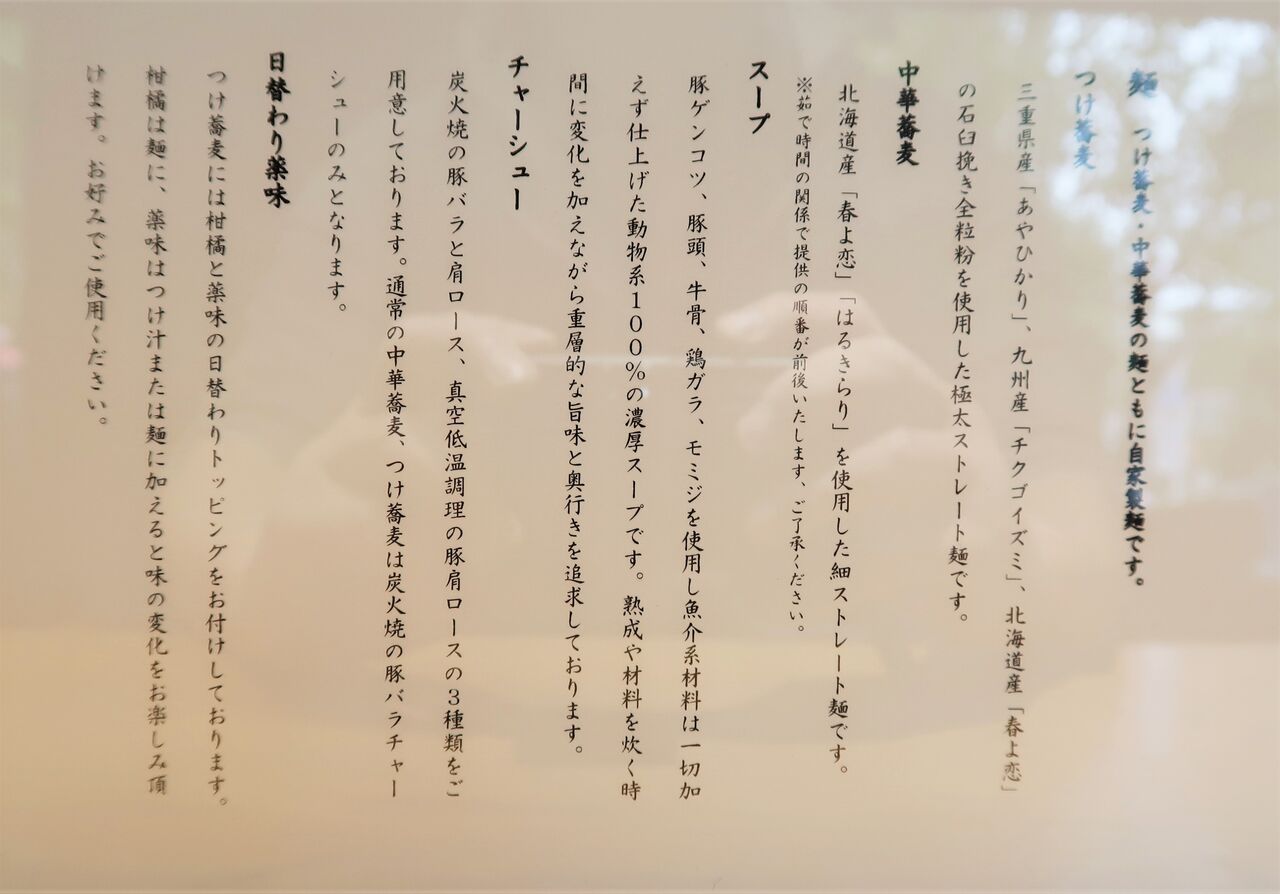 麺　つけ蕎麦・中華蕎麦の麺ともに自家製麺です。
つけ蕎麦
三重県産「あやひかり」、九州産「チクゴイズミ」、北海道産「春よ恋」
の石臼挽き全粒粉を使用した極太ストレート麺です。
中華蕎麦
北海道産「春よ恋」「はるきらり」を使用した細ストレート麺です。
※茹で時間の関係で提供の順番が前後いたします、ご了承ください。
スープ
豚ゲンコツ、豚頭、牛骨、鶏ガラ、モミジを使用し魚介系材料は一切加
えず仕上げた動物系１００％の濃厚スープです。熟成や材料を炊く時
間に変化を加えながら重層的な旨味と奥行きを追求しております。
チャーシュー
炭火焼の豚バラと肩ロース、真空低温調理の豚肩ロースの３種類をご
用意しております。通常の中華蕎麦、つけ蕎麦は炭火焼の豚バラチャー
シューのみとなります。
日替わり薬味
つけ蕎麦には柑橘と薬味の日替わりトッピングをお付けしております。
柑橘は麺に、薬味はつけ汁または麺に加えると味の変化をお楽しみ頂
けます。お好みでご使用ください。